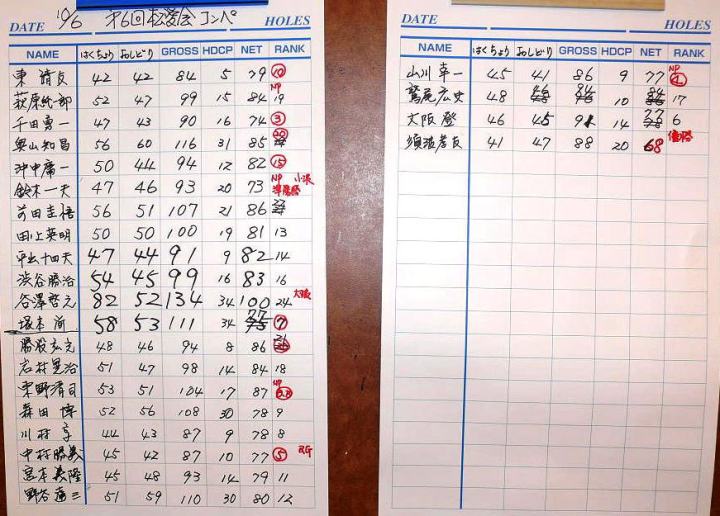 DATE '10/6 第6回松愛会コンペ HOLES
NAME はくちょう おしどり GROSS HDCP NET RANK
東 靖友 42 42 84 5 79 10
NP
萩原統一郎 52 47 99 15 84 19
千田勇一 47 43 90 16 74 3
奥山知昌 56 60 116 31 85 20
沖中廣一 50 44 94 12 82 15
鈴木一夫 47 46 93 20 73 NP 小波 準優勝
前田圭悟 56 51 107 21 86
田上英明 50 50 100 19 81 13
平山十四夫 47 44 91 9 82 14
渋谷勝治 54 45 99 16 83 16
谷澤哲元 82 52 134 34 100 24 大波
坂本 58 53 111 34 77 7
48 46 94 8 86 21
石林晃治 51 47 98 14 84 18
NP
東野清司 53 51 104 17 87 23
森田 博 52 56 108 30 78 9
川村 享 44 43 87 9 78 8
中村勝義 45 42 87 10 77 5 BG
宮本義隆 45 48 93 14 79 11
野谷 三 51 59 110 30 80 12
DATE HOLES
NAME はくちょう おしどり GROSS HDCP NET RANK
NP
山川幸一 45 41 86 9 77 4
鷲尾広史 48 46 94 10 84 17
大阪 登 46 45 91 14 77 6
須波孝友 41 47 88 20 68 優勝